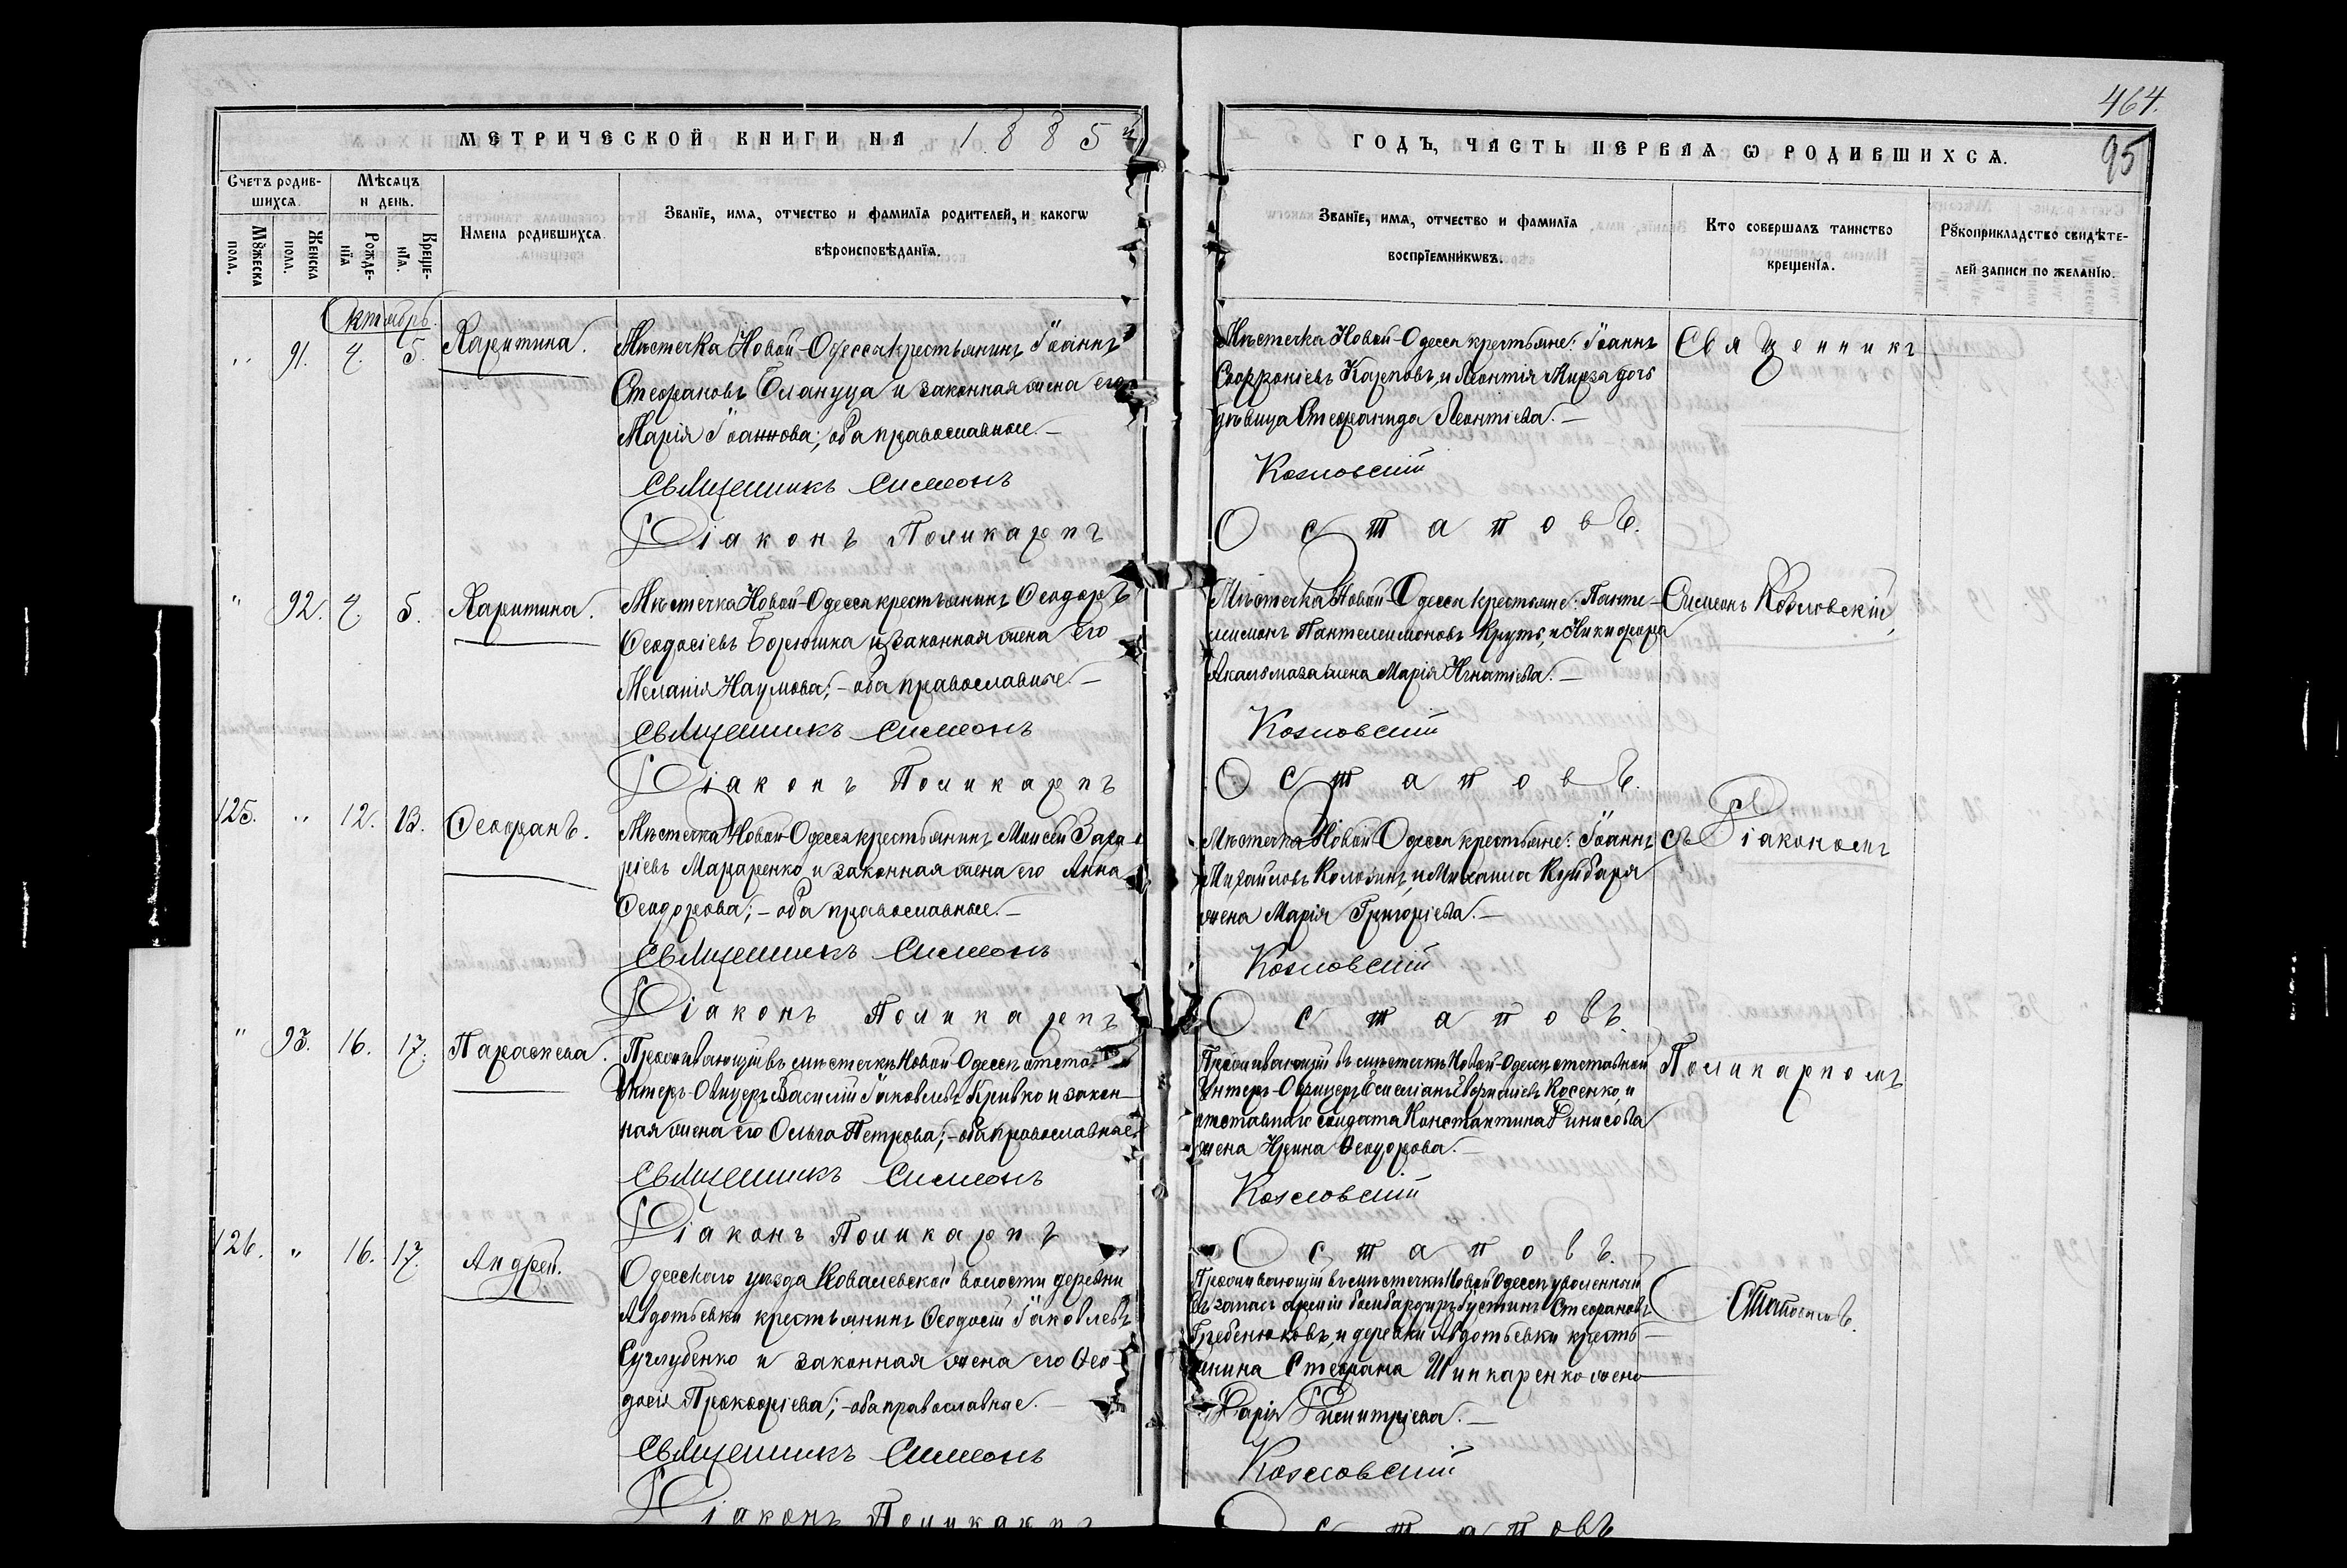 464.
МЕТРИЧЕСКОЙ КНИГИ НА 1885й
ГОДЪ, ЧАСТЬ ПЕРВАЯ Ѡ РОДИВШИХСЯ.
95
Счетъ родив-
шихся.
Мѣсяцъ
и день.
Мꙋжеска
пола.
Женска
пола.
Рожде-
нїя
Креще-
нїя.
Имена родившихся.
Званїе, имя, отчество и фамилїя родителей, и какогѡ
вѣроисповѣданїя.
Званїе, имя, отчество и фамилїя
воспрїемникѡвъ.
Кто совершалъ таинство
крещенїя.
Рꙋкоприкладство свидѣте-
лей записи по желанїю.
Октябрь.
" 91. 4. 5. Харитина.
Мѣстечка Новой-Одесса крестьянинъ Іоаннъ
Стефановъ и законная жена его
Марія Іоаннова; оба православные.—
Священникъ Симеонъ
Діаконъ Поликарпъ
Мѣстечка Новой-Одесса крестьяне: Іоаннъ
Софроніевъ Карповъ, и Леонтія Мирза дочь
дѣвица Стефанида Леонтіева.—
Козловскій
Остаповъ.
Священникъ
" 92. 4. 5. Харитина.
Мѣстечка Новой-Одесса крестьянинъ Ѳеодоръ
Ѳеодосіевъ и законная жена его
Меланія Наумова;- оба православные.—
Священникъ Симеонъ
Діаконъ Поликарпъ
Мѣстечка Новой-Одесса крестьяне: Панте-
леимонъ Пантелеимоновъ Крутъ, и Никифора
жена Марія Игнатіева.—
Козловскій
Остаповъ.
Симеонъ Козловскій,
125. " 12. 13. Ѳеофанъ.
Мѣстечка Новой-Одесса крестьянинъ Моисей Заха-
ріевъ Макаренко и законная жена его Анна
Ѳеодорова;- оба православные.—
Священникъ Симеонъ
Діаконъ Поликарпъ
Мѣстечка Новой-Одесса крестьяне: Іоаннъ
Михайловъ и Михаила Куибаря
жена Марія Григоріева.—
Козловскій
Остаповъ.
съ Діакономъ
" 93. 16. 17. Параскева.
Проживающій въ мѣстечкѣ Новой-Одессѣ
Унтеръ-Офицеръ Василій Іаковлевъ Кривко и закон-
ная жена его Ольга Петрова;- оба православные
Священникъ Симеонъ
Діаконъ Поликарпъ
Проживающій въ мѣстечкѣ Новой-Одессѣ отставной
Унтеръ-Офицеръ Косенко, и
отставнаго солдата Константина
жена Ирина Ѳеодорова.—
Козловскій
Остаповъ.
Поликарпомъ
126. " 16. 17. Андрей.
Одесскаго уѣзда Ковалевской волости деревни
Авдотьевки крестьянинъ Ѳеодосій Іаковлевъ
и законная жена его Ѳео-
досія Прокофіева;- оба православные.—
Священникъ Симеонъ
Діаконъ Поликарпъ
Проживающій въ мѣстечкѣ Новой Одессѣ уволенный
въ запасъ арміи бомбардиръ Іустинъ Стефановъ
Гребенюковъ, и деревни Авдотьевки кресть-
янина Стефана Шинкаренко жена
Дарія Димитріева.—
Козловскій
Остаповъ
Остаповымъ.